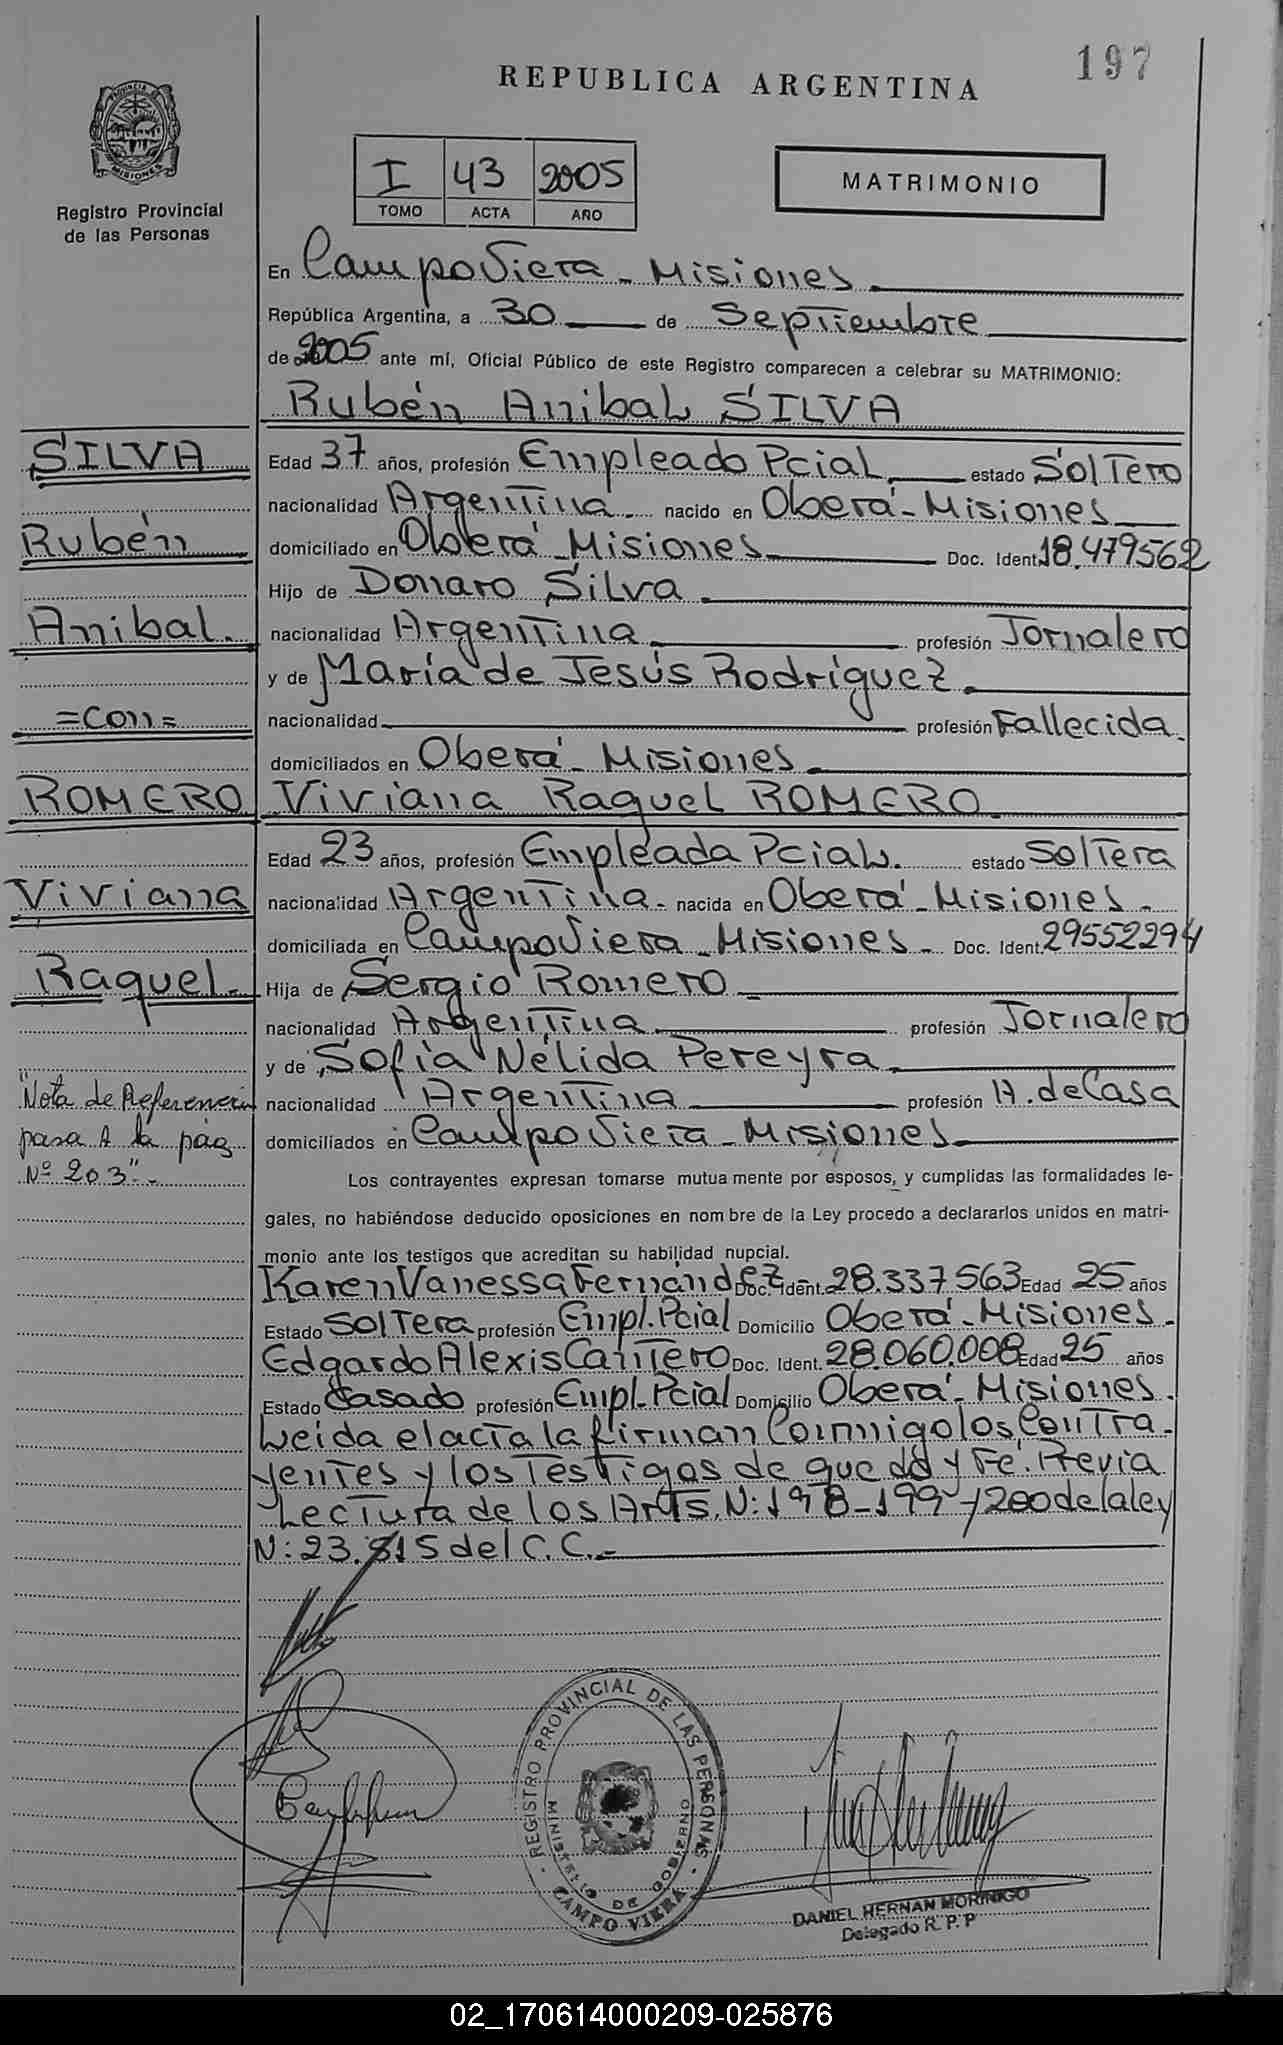 197
REPUBLICA ARGENTINA
PROVINCIA DE MISIONES
Registro Provincial
de las Personas
I 43 2005
TOMO ACTA AÑO
MATRIMONIO
En Campo Viera - Misiones
República Argentina, a 30 de Septiembre
de 2005 ante mí, Oficial Público de este Registro comparecen a celebrar su MATRIMONIO:
Rubén Anibal SILVA
SILVA
Rubén
Anibal.
=Con=
ROMERO
Viviana
Raquel.
"Nota de Referencia
pasa A la pág
Nº 203".-
Edad 37 años, profesión Empleado Pcial estado Soltero
nacionalidad Argentina. nacido en Oberá - Misiones
domiciliado en Oberá - Misiones Doc. Ident. 18.479562
Hijo de Donaro Silva.
nacionalidad Argentina profesión Jornalero
y de María de Jesús Rodríguez.
nacionalidad profesión Fallecida.
domiciliados en Oberá - Misiones
Viviana Raquel ROMERO
Edad 23 años, profesión Empleada Pcial. estado Soltera
nacionalidad Argentina - nacida en Oberá - Misiones -
domiciliada en Campo Viera - Misiones - Doc. Ident. 29552294
Hija de Sergio Romero -
nacionalidad Argentina profesión Jornalero
y de Sofía Nélida Pereyra
nacionalidad Argentina profesión A. de Casa
domiciliados en Campo Viera - Misiones
Los contrayentes expresan tomarse mutua mente por esposos, y cumplidas las formalidades le-
gales, no habiéndose deducido oposiciones en nom bre de la Ley procedo a declararlos unidos en matri-
monio ante los testigos que acreditan su habilidad nupcial.
Karen Vanessa Fernández - Doc. Ident. 28.337.563 Edad 25 años
Estado Soltera profesión Empl. Pcial Domicilio Oberá - Misiones -
Edgardo Alexis Cantero Doc. Ident. 28.060.008 Edad 25 años
Estado Casado profesión Empl. Pcial Domicilio Oberá - Misiones.
Leida el acta la firman Conmigo los Contra-
yentes y los Testigos de que doy Fé. Previa
Lectura de los Arts. N: 198-199 y 200 de la ley
N: 23.515 del C.C.-
- REGISTRO PROVINCIAL DE LAS PERSONAS -
MINISTERIO DE GOBIERNO
CAMPO VIERA
DANIEL HERNAN MORINIGO
Delegado R. P. P
02_170614000209-025876